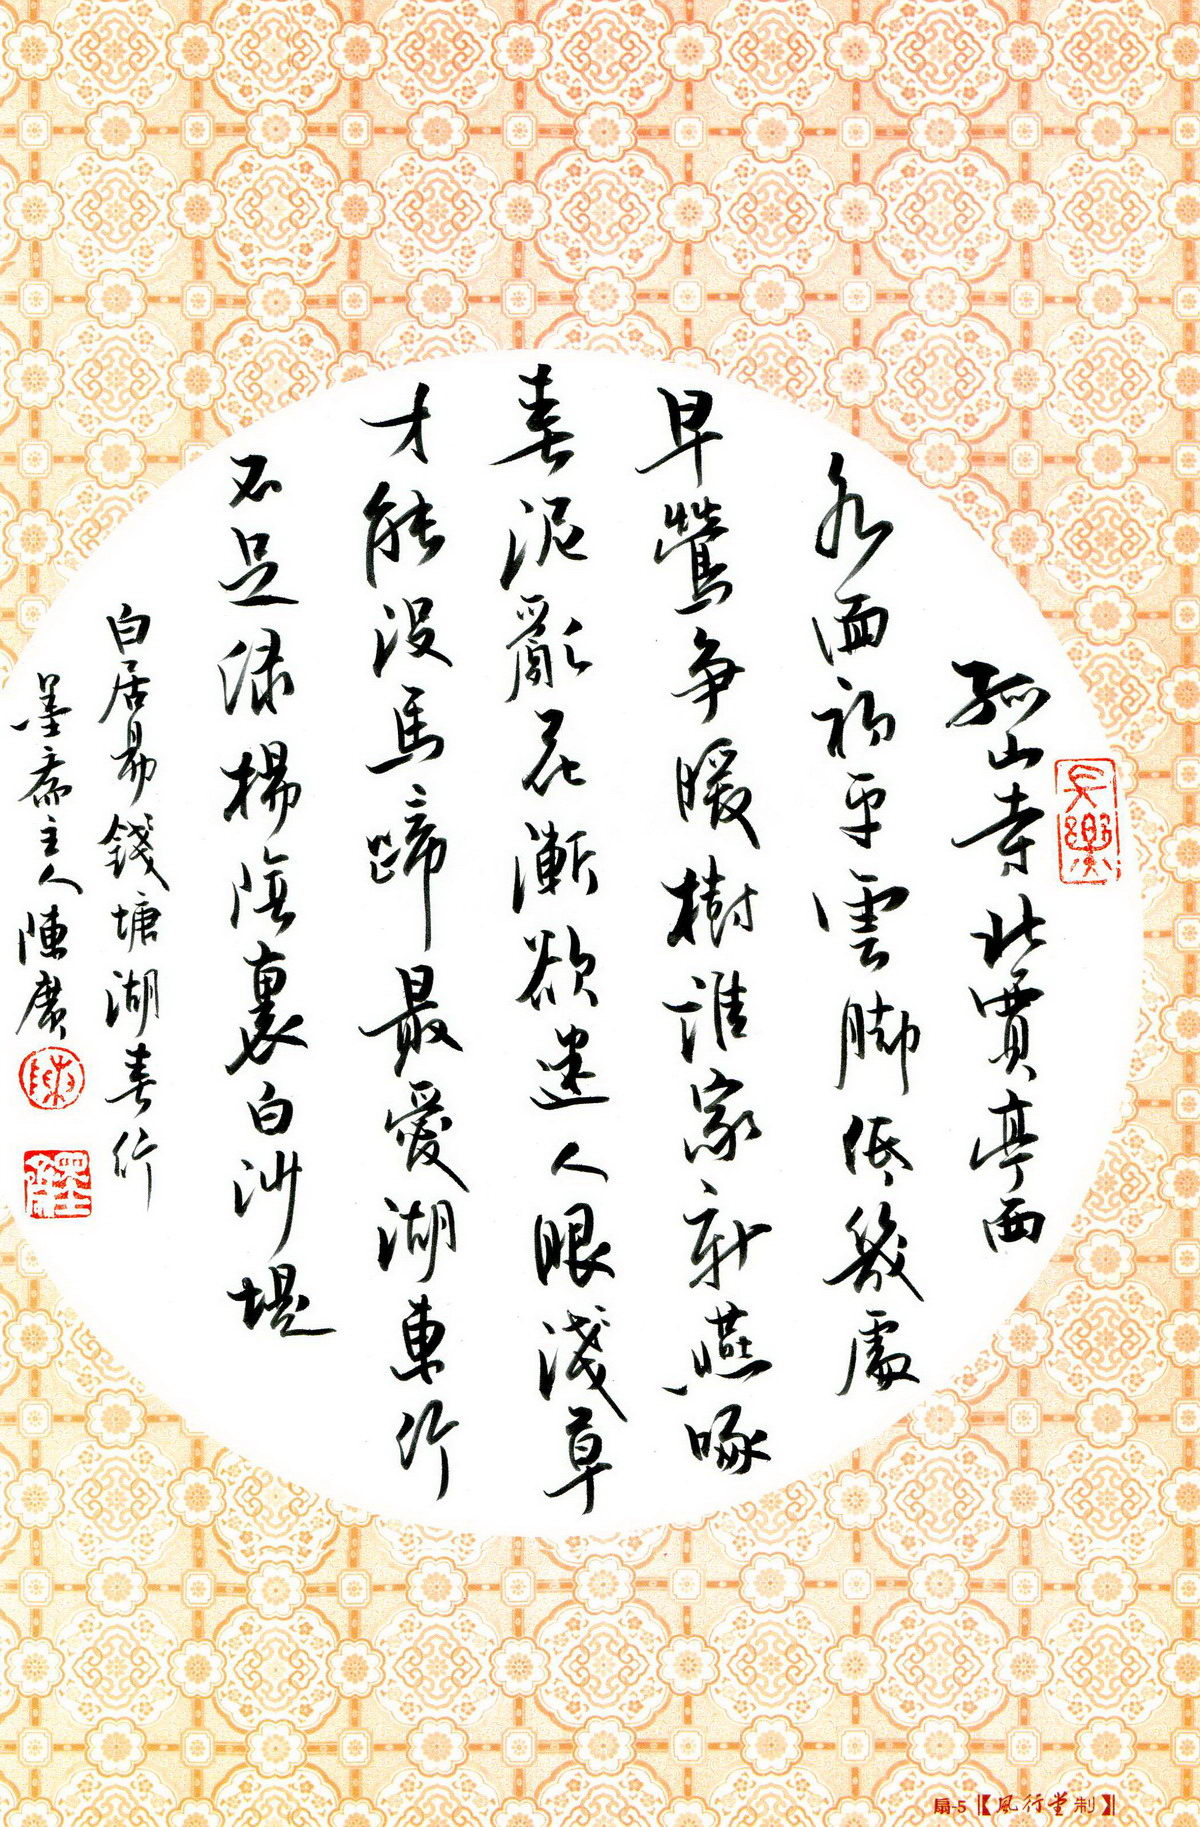 孤山寺北賈亭西
水面初平雲脚低幾處
早鶯争暖樹誰家新燕啄
春泥亂花漸欲迷人眼淺草
才能没馬蹄最愛湖東行
不足绿楊陰裏白沙堤
白居易錢塘湖春行
墨齋主人陳廣
扇-5【風行堂制】